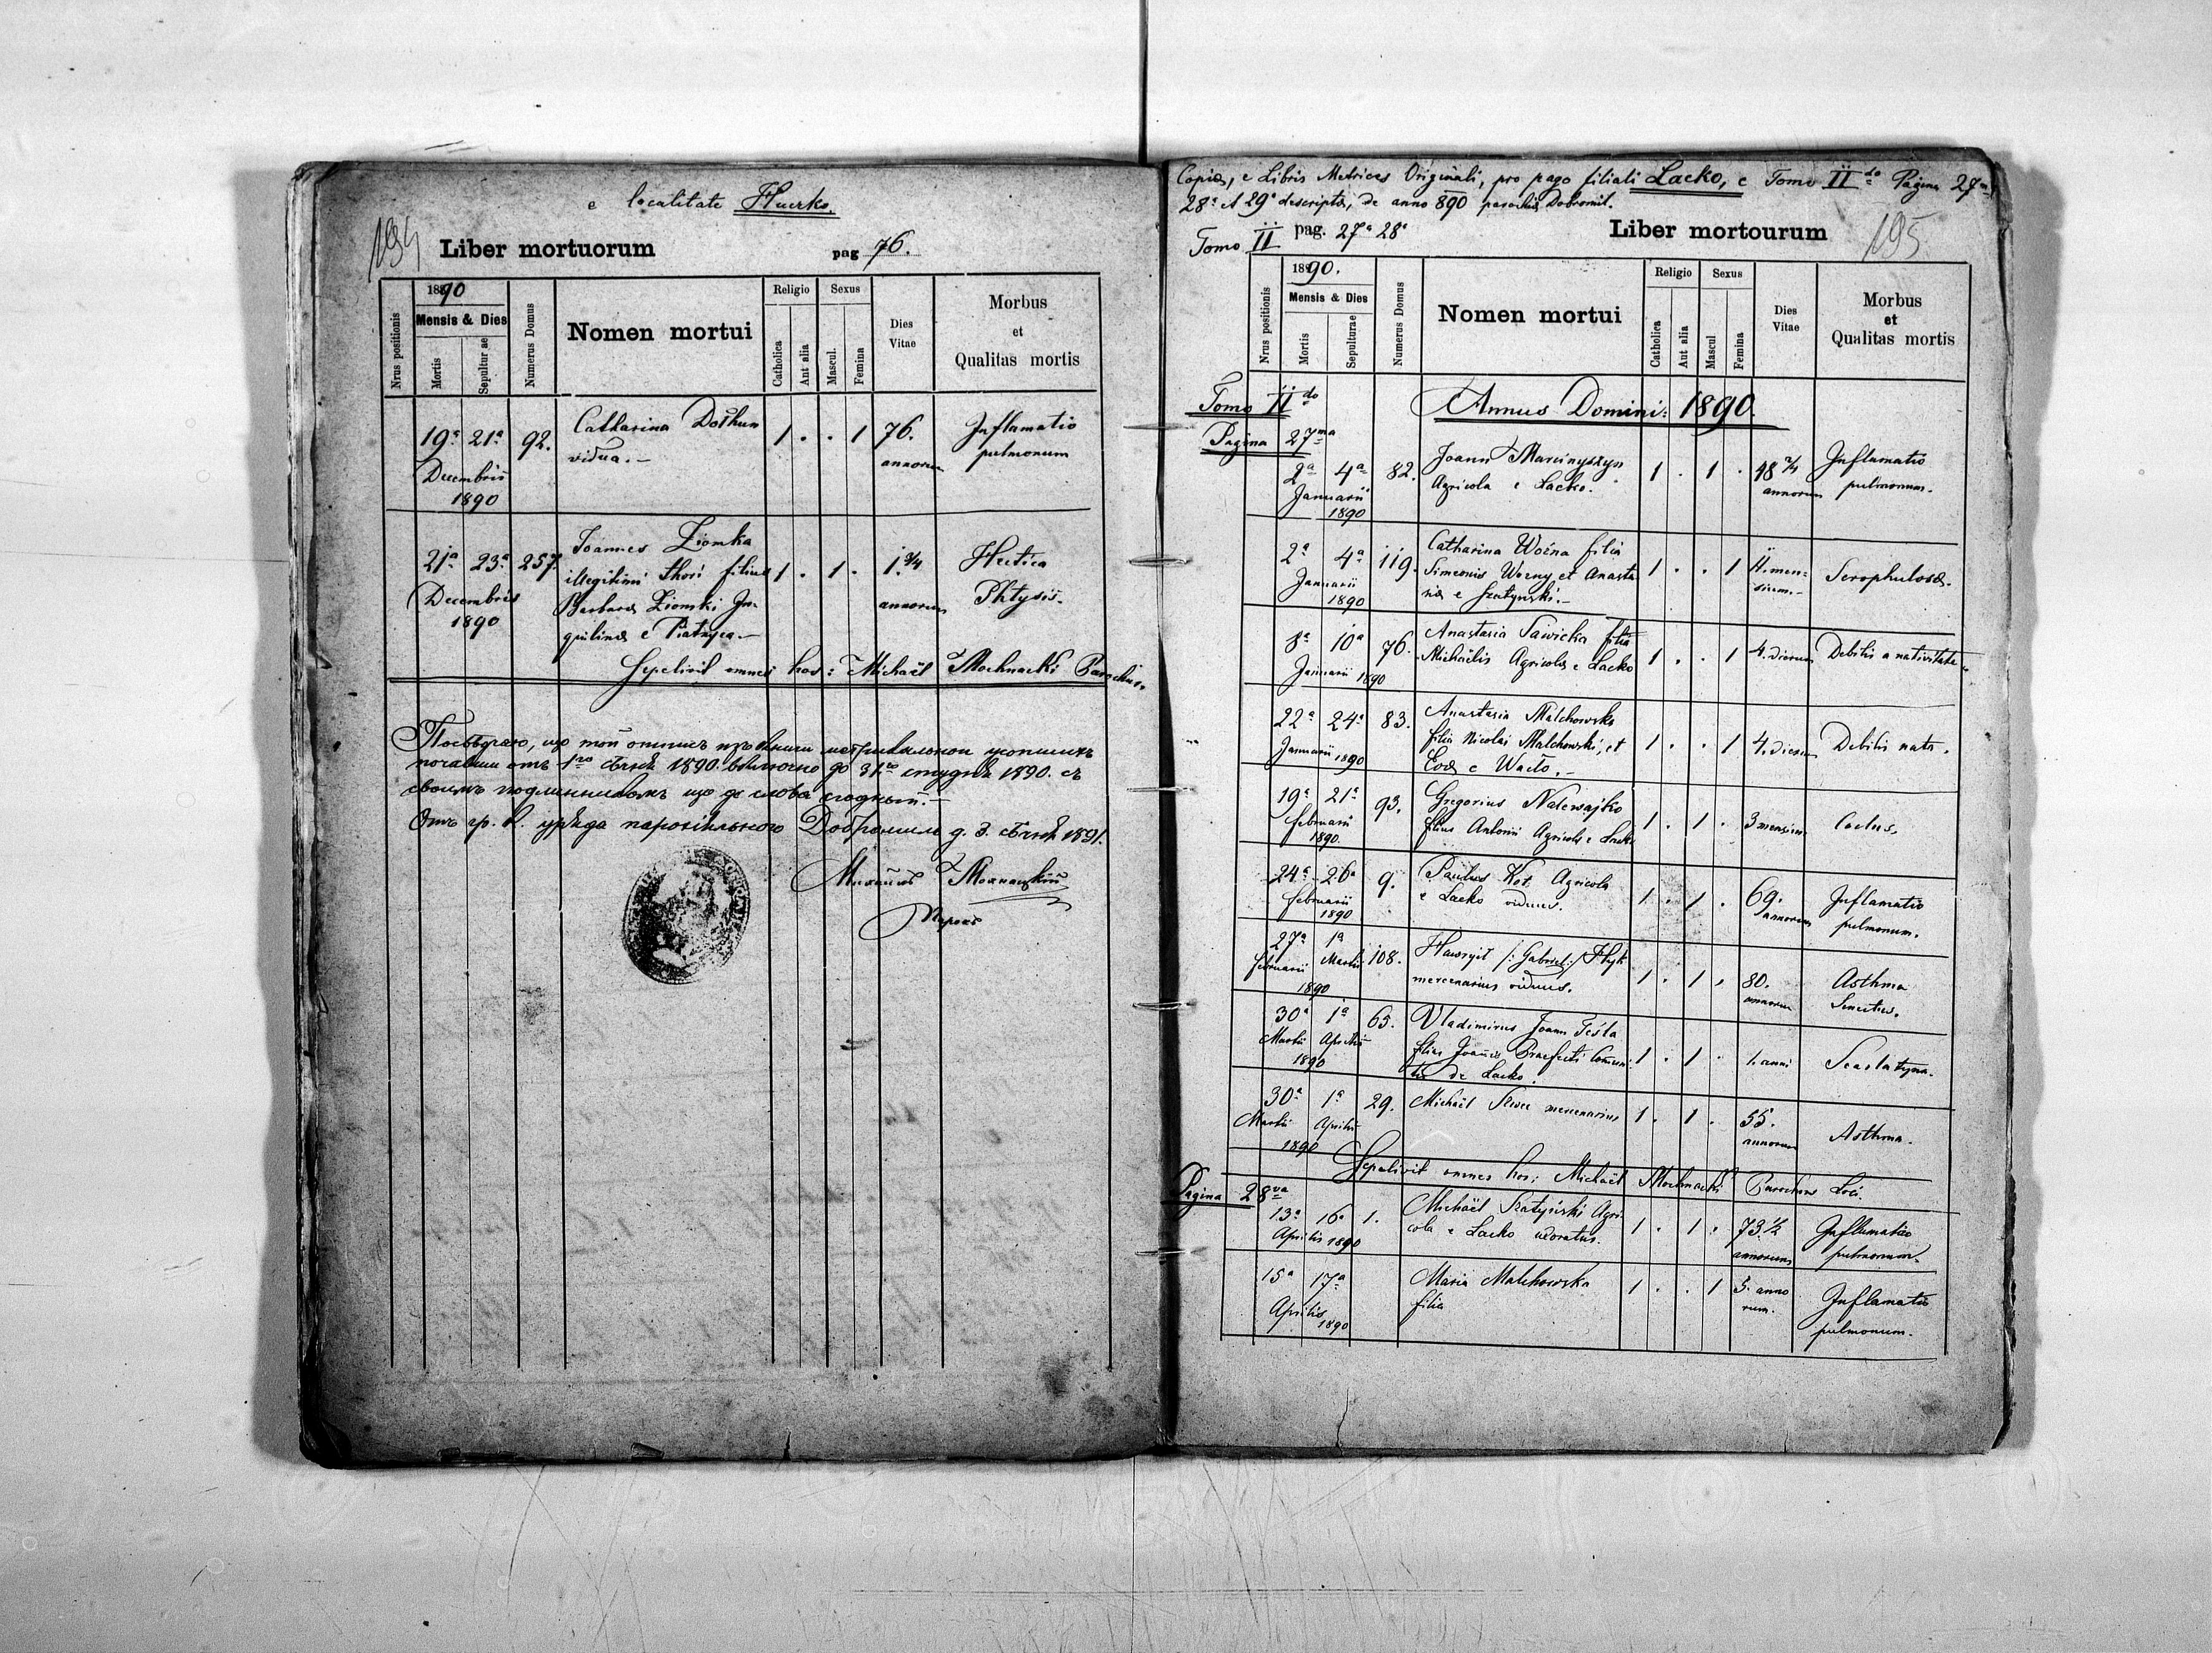 e localitate Huerko.
194 Liber mortuorum pag 76.
Nrus positionis
1890
Mensis & Dies
Mortis
Sepulturae
Numerus Domus
Nomen mortui
Religio
Catholica
Aut alia
Sexus
Mascul.
Femina
Dies
Vitae
Morbus
et
Qualitas mortis
19ª 21ª 92. Catharina 1 . . 1 76. Inflamatio
Decembris vidua.- annorum pulmonum
1890
21ª 23ª 257. Joannes Ziomka 1 . 1 . 1.¾ Hectica
Decembris illegitimi thori filius annorum Phtysis.
1890 Barbara Ziomki In-
quilina e Piatnica.-
Sepelivit omnes hos: Michaël Mochnacki Parochus.
почавши отъ 1го сѣчня 1890. включно до 31го студня 1890. съ
своимъ подлинникомъ що до слова згодный.-
Отъ гр. к. уряда парохіяльного Добромиль д. 3. сѣчня 1891.
Михаилъ Мохнацкій
Парохъ
Copia, e Libris Metrices Originali, pro pago filiali Lacko, e Tomo IIdo Pagina 27ma
28ª et 29ª descripta, de anno 890 parochia Dobromil.
Tomo II pag. 27ª 28ª Liber mortourum 195
Nrus positionis
1890.
Mensis & Dies
Mortis
Sepulturae
Numerus Domus
Nomen mortui
Religio
Catholica
Aut alia
Sexus
Mascul
Femina
Dies
Vitae
Morbus
et
Qualitas mortis
Tomo IIdo Annus Domini: 1890.
Pagina 27ma
2ª 4ª 82. Joann Marcinyszyn 1 . 1 . Inflamatio
Januarii Agricola e Lacko. annorum pulmonum.
1890
2ª 4ª 119. Catharina Woźna filia 1 . . 1 11. men- Scrophulosa.
Januarii Simeonis Wozny et Anasta- sium.-
1890 sia e Szatynski.-
8ª 10ª 76. Anastasia Sawicka filia 1 . . 1 4. dierum Debilis a nativitate.
Januarii 1890 Michaëlis Agricola e Lacko
22ª 24ª 83. Anastasia Malchowska 1 . . 1 4. dierum Debilis nata.
Januarii 1890 filia Nicolai Malchowski, et
Eva e
19ª 21ª 93. Gregorius Nalewajko 1 . 1 . 3 mensium
Februarii filius Antonii Agricola e Lacko
1890.
24ª 26ª 9. Paulus Kot Agricola 1 . 1 . 69. Inflamatio
Februarii e Lacko viduus. annorum pulmonum.
1890
27ª 1ª 108. Hawryil /:Gabriel:/ Hyk 1 . 1 . 80. Asthma
Februarii Martii mercenarius viduus. annorum Senectus.
1890
30ª 1ª 65. Vladimirus Joann Tesla 1 . 1 . 1. anni Scarlatyna.
Martii Aprilis filius Joannis Praefecti
1890 de Lacko.
30ª 1ª 29. Michaël mercenarius 1 . 1 . 55. Asthma.
Martii Aprilis annorum
1890
Sepelivit omnes hos: Michaël Mochnacki Parochus Loci.
Pagina 28va
13ª 16ª 1. Michaël Szatyński Agri- 1 . 1 . 73.½ Inflamatio
Aprilis 1890 cola e Lacko uxoratus. annorum pulmonum.
15ª 17ª Maria Malchowska 1 . . 1 5. anno- Inflamatio
Aprilis filia rum. pulmonum.
1890